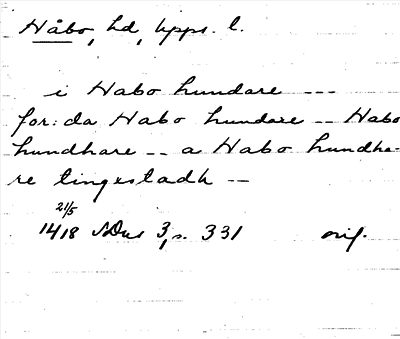 Håbo, hd, Upps. l.
i Habo hundare ---
for: da Habo hundare -- Habo
hundhare -- a Habo hundha-
re tingestadh --
21/5
1418 SDns 3, s. 331 orig.